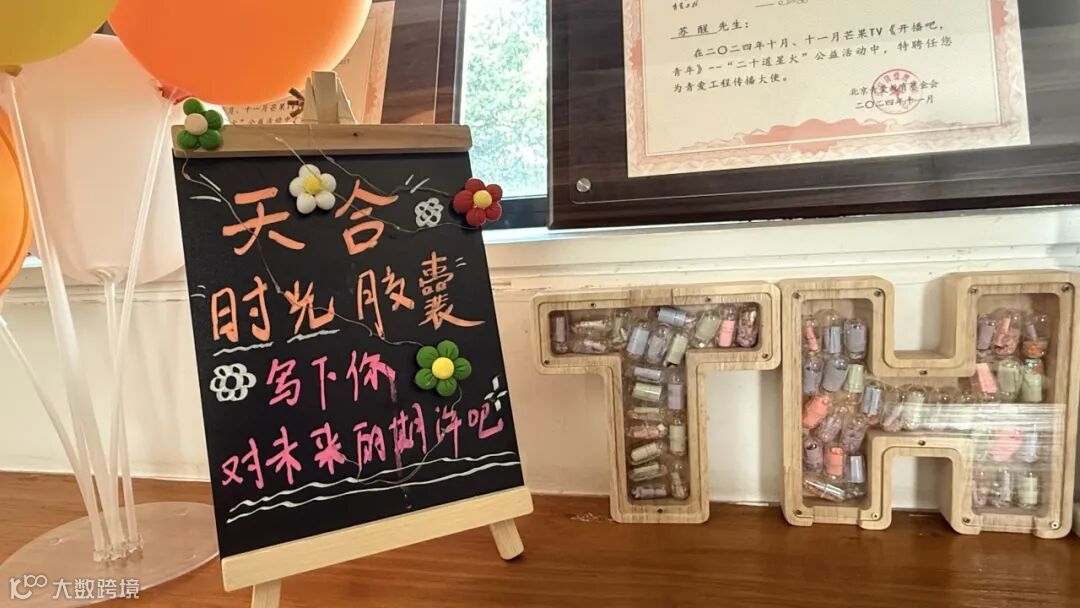 苏醒 先生:
在二〇二四年十月、十一月芒果TV《开播吧,
青年》--“二十道星火”公益活动中,特聘任您
为青爱工程传播大使。
北京青爱教育基金会
二〇二四年十一月
月、十一月芒果TV
天合
时光胶囊
写下你
对未来的期许吧
TH
大数跨境